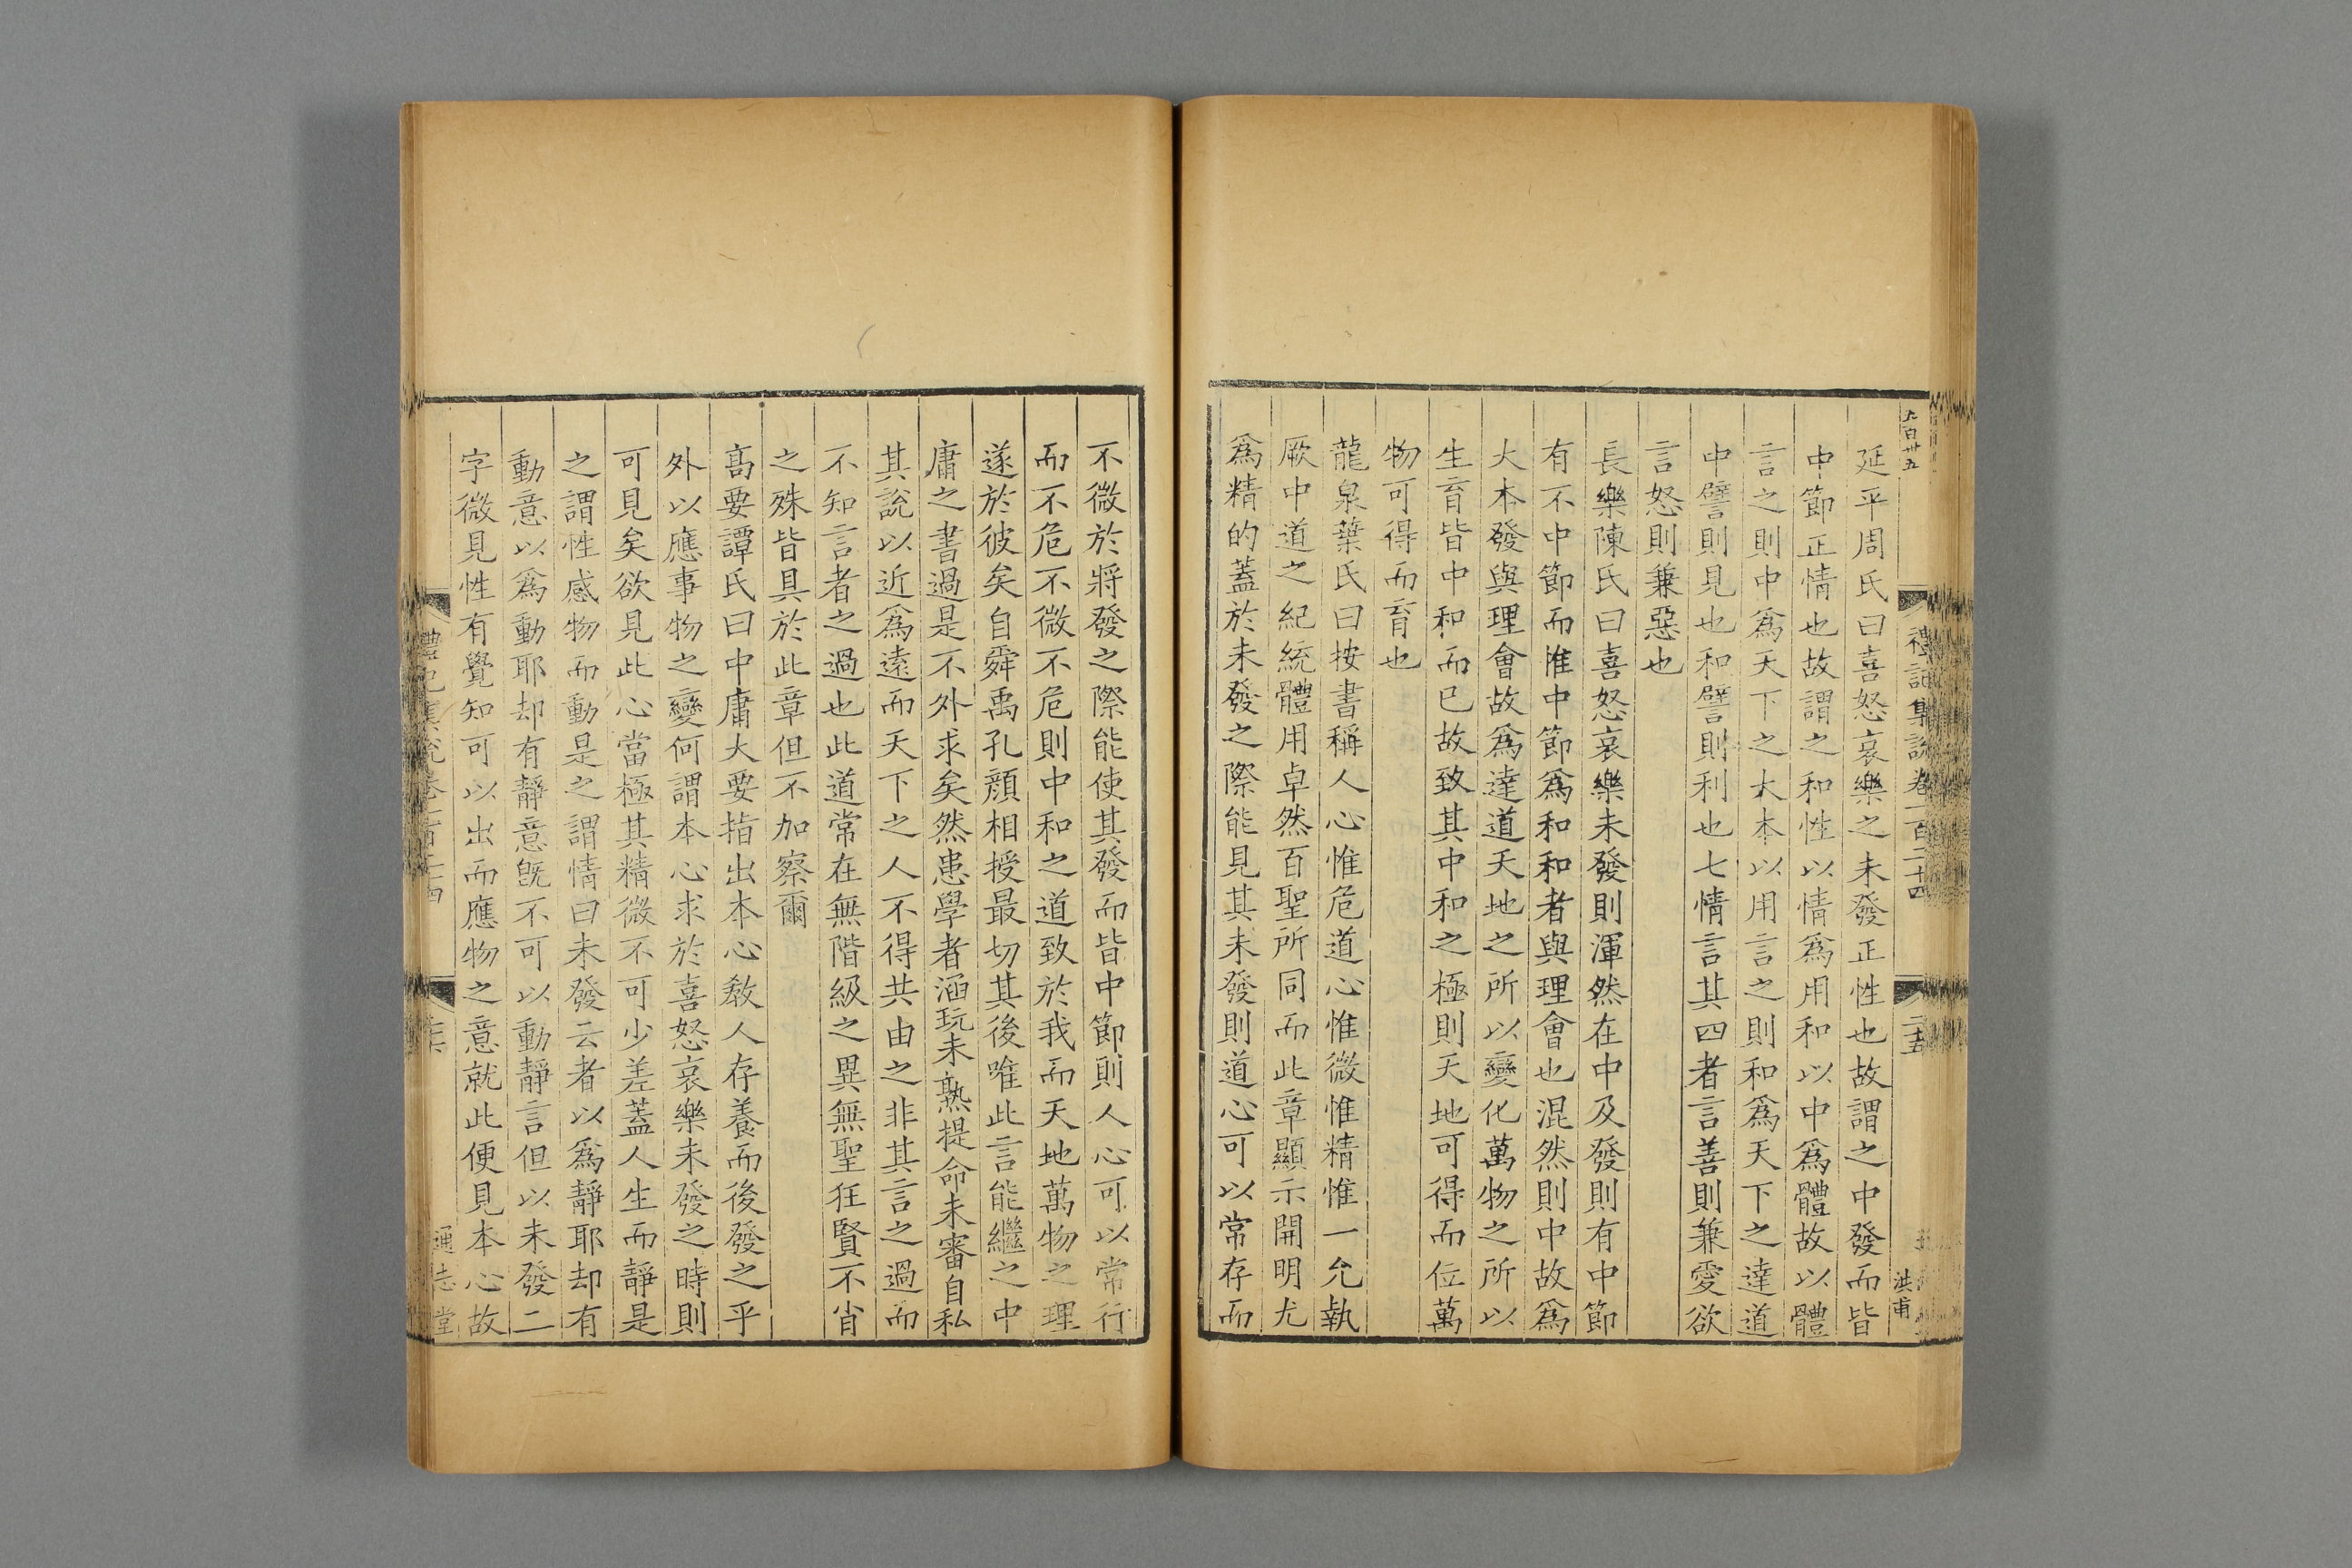 延平周氏曰喜怒哀樂之未發正性也故謂之中發而皆
中節正情也故謂之和性以情爲用和以中爲體故以體
言之則中爲天下之大本以用言之則和爲天下之達道
中譬則見也和譬則利也七情言其四者言善則兼愛欲
言怒則兼惡也
長樂陳氏曰喜怒哀樂未發則渾然在中及發則有中節
有不中節而惟中節爲和和者與理會也混然則中故爲
大本發與理會故爲達道天地之所以變化萬物之所以
生育皆中和而已故致其中和之極則天地可得而位萬
物可得而育也
龍泉葉氏曰按書稱人心惟危道心惟微惟精惟一允執
厥中道之紀統體用卓然百聖所同而此章顯示開明尤
爲精的蓋於未發之際能見其未發則道心可以常存而
不微於將發之際能使其發而皆中節則人心可以常行
而不危不微不危則中和之道致於我而天地萬物之理
遂於彼矣自舜禹孔顔相授最切其後唯此言能繼之中
庸之書過是不外求矣然患學者涵玩未熟提命未審自私
其說以近爲遠而天下之人不得共由之非其言之過而
不知言者之過也此道常在無階級之異無聖狂賢不肖
之殊皆具於此章但不加察爾
高要譚氏曰中庸大要指出本心教人存養而後發之乎
外以應事物之變何謂本心求於喜怒哀樂未發之時則
可見矣欲見此心當極其精微不可少差蓋人生而靜是
之謂性感物而動是之謂情曰未發云者以爲靜耶却有
動意以爲動耶却有靜意旣不可以動靜言但以未發二
字微見性有覺知可以出而應物之意就此便見本心故
禮記集說卷一百二十四
二十五
洪甫
通志堂